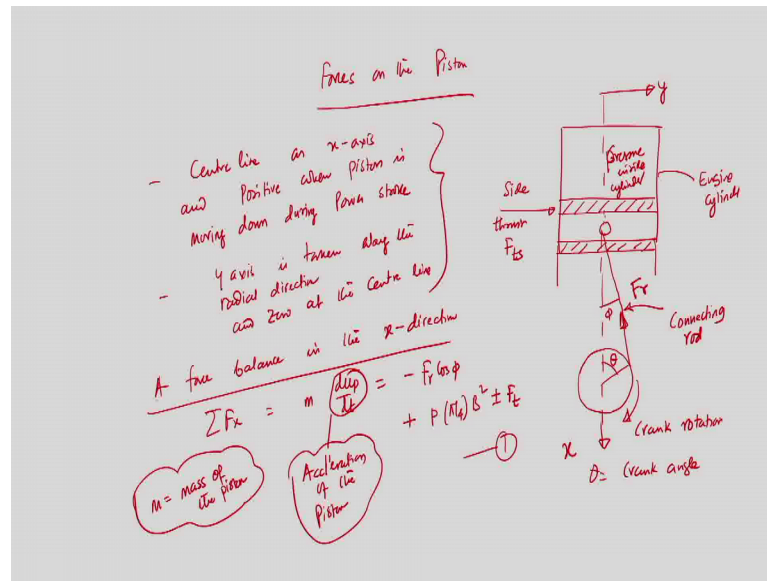 Forces on the Piston
- Centre line as x-axis
and Positive when Piston is
moving down during Power stroke
- y axis is taken along the
radial direction
and zero at the Centre line
A force balance in the x-direction
ΣFx = m dup/dt = - Fr cosφ
+ P(π/4)B² ± Ft
— 1
m = mass of
the piston
Accleration
of the
Piston
y
Pressure
inside
cylinder
Engine
cylinder
Side
thrust
Fts
Fr
φ
Connecting
rod
θ
Crank rotation
x
θ = Crank angle